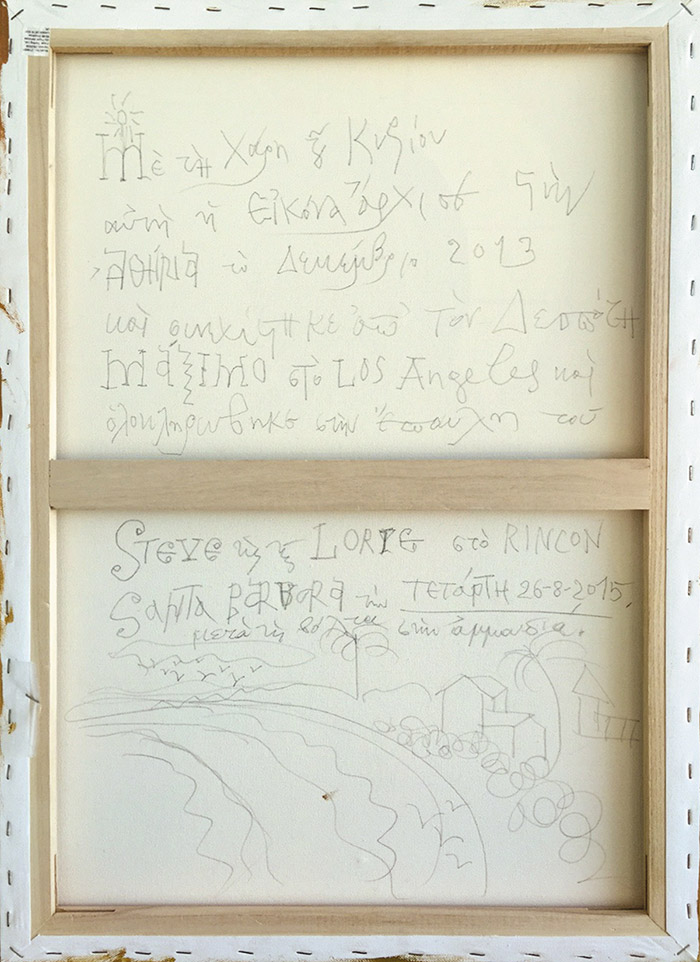 Μὲ τὴ Χάρη ȣ͂ Κυρίου
αὐτὴ ἡ Εἰκόνα ἄρχισε στὴν
Ἀθήνα τὸ Δεκέμβριο 2013
καὶ συνεχίστηκε ἀπὸ τὸν Δεσπότη
Μάξιμο στὸ LOS Angeles καὶ
ὁλοκληρώθηκε στὴν ἔπαυλη τοῦ
STEVE τῆς LORIE στὸ RINCON
SANTA BARBARA τὴν ΤΕΤΑΡΤΗ 26-8-2015,
μετὰ τὴ βόλτα στὴν ἀμμουδιά.